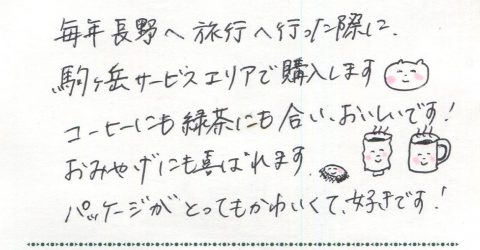 毎年長野へ旅行へ行った際に、
駒ヶ岳サービスエリアで購入します
コーヒーにも緑茶にも合い、おいしいです!
おみやげにも喜ばれます。
パッケージがとってもかわいくて、好きです!